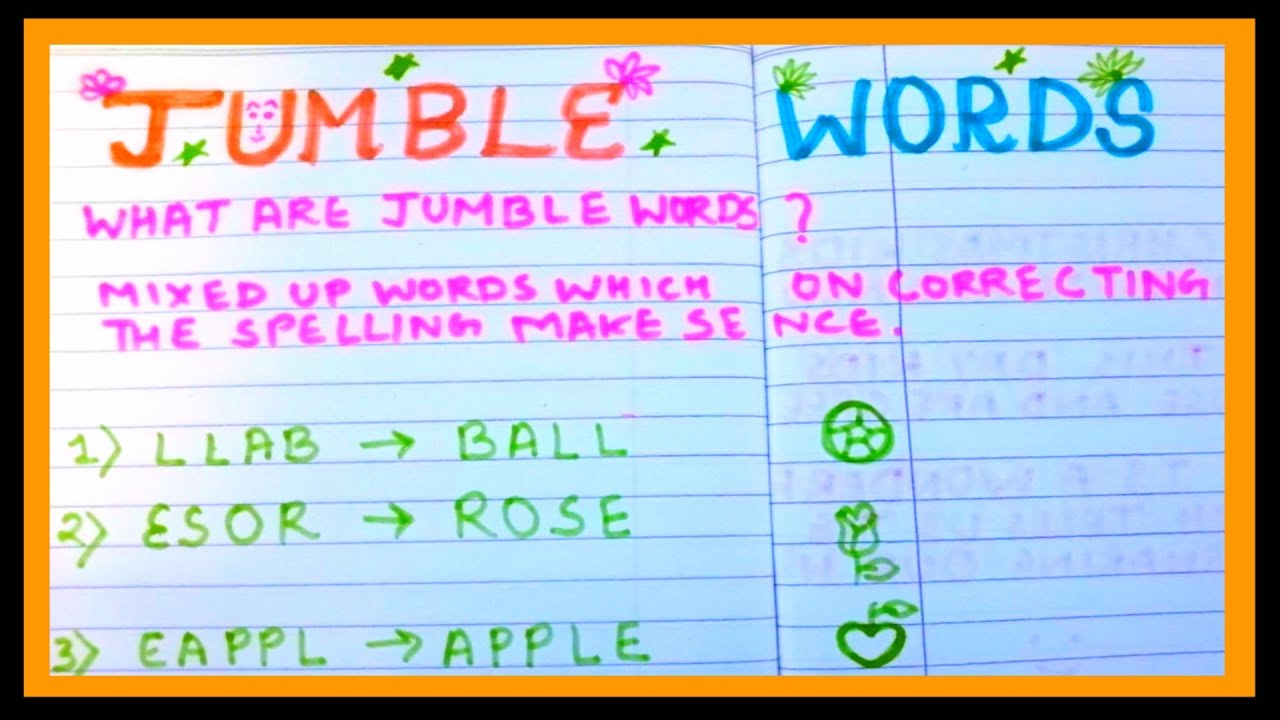 JUMBLE WORDS
WHAT ARE JUMBLE WORDS ?
MIXED UP WORDS WHICH ON CORRECTING
THE SPELLING MAKE SENCE.
1) LLAB → BALL
2) ESOR → ROSE
3) EAPPL → APPLE